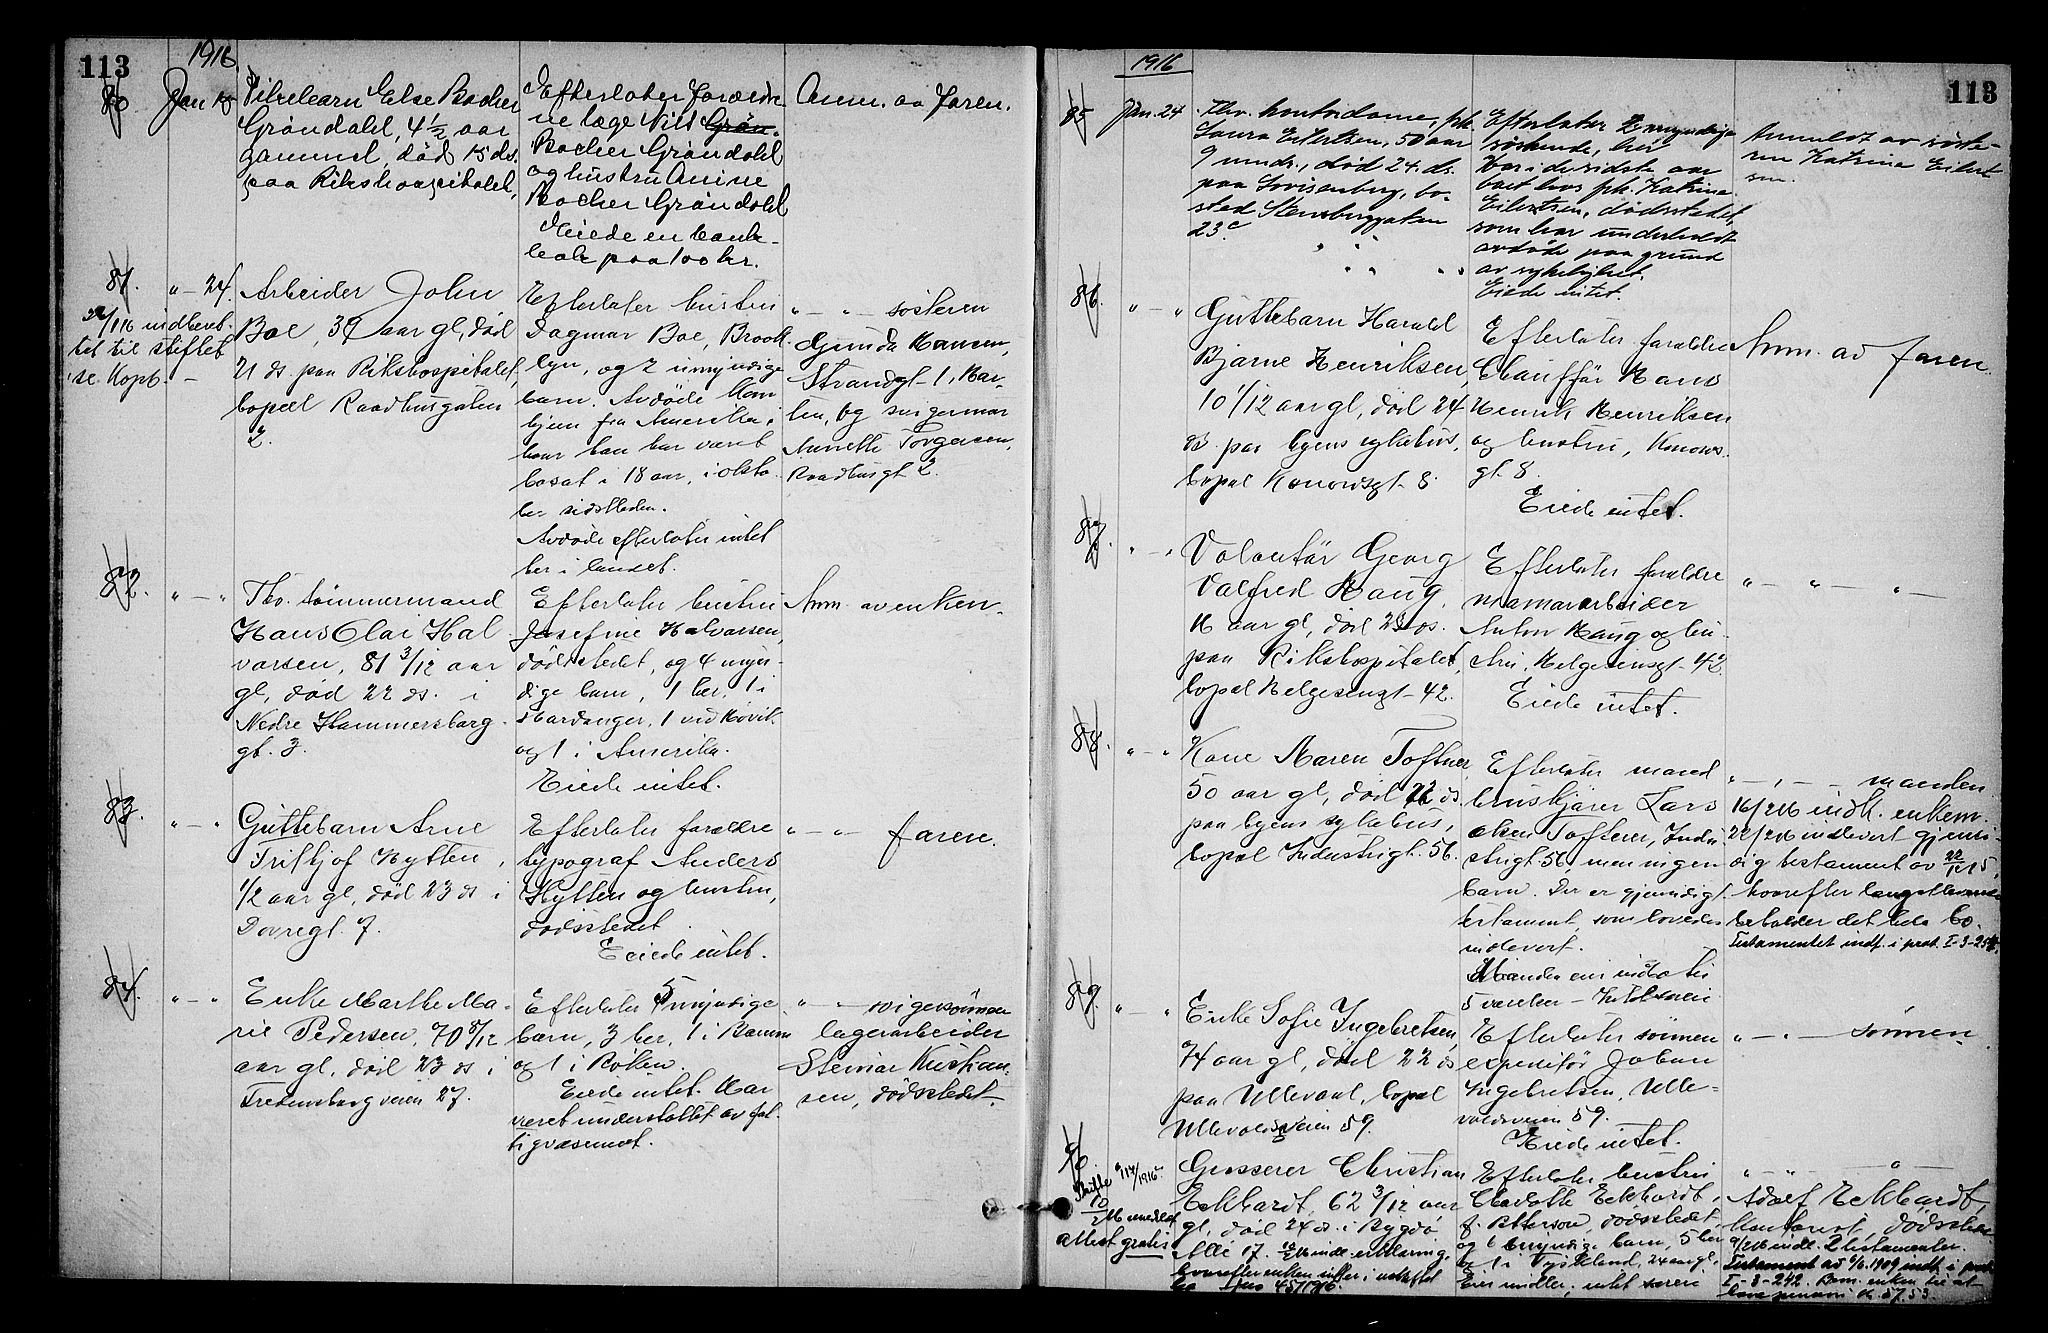 113
1916
80
Jan
Pikebarn Else Backer
Gröndahl, 4 1/2 aar
gammel, död 15 ds.
paa Rikshospitalet.
Efterlater foræld-
re læge Nils Grön-
Backer Gröndahl
og hustru Anine
Backer Gröndahl
Eiede en bank-
bok paa 100 kr.
Anm. av faren.
81.
" — 24.
indberet-
tet til stiftet
se Kopb.
Arbeider John
Boe, 39 aar gl, död
21 ds. paa Rikshospitalet,
bopæl Raadhusgaten
2.
Efterlater hustru
Dagmar Boe, Brook-
lyn, og 2 umyndige
barn. Avdöde kom
hjem fra Amerika,
hvor han har været
bosat i 18 aar, i okto-
ber sidstleden.
Avdöde efterlater intet
her i landet.
" — " — sösteren
Gunda Hansen,
Strandgt. 1, Hor-
ten, og svigermor
Annette Torgersen,
Raadhusgt 2.
82.
" — "
Fhv. tömmermand
Hans Olai Hal
vorsen, 81 3/12 aar
gl, död 22 ds. i
Nedre Hammersborg-
gt. 3.
Efterlater hustru
Josefine Halvorsen,
dödsstedet, og 4 myn-
dige barn, 1 her, 1 i
Hardanger, 1 ved Hövik
og 1 i Amerika.
Eiede intet.
Anm. av enken.
83.
" — "
Guttebarn Arne
Fritjof Hytten,
1/2 aar gl, död 23 ds i
Dovregt. 7.
Efterlater forældre
typograf Anders
Hytten og hustru,
dödsstedet.
Eiede intet.
" — " faren.
84.
" — "
Enke Marthe Ma-
rie Pedersen, 70 8/12
aar gl, död 23 ds i
Fredensborgveien 27.
Efterlater 5 myndige
barn, 3 her, 1 i
og 1 i Röken.
Eiede intet. Har
været understöttet av fat-
tigvæsenet.
" — " — svigersönnen
lagerarbeider
Steinar Kristian-
sen, dödsstedet.
113
1916
85
Jan. 24
Fhv. kontordame, frk.
Laura Eilertsen, 50 aar
9 mnds., död 24. ds.
paa Lovisenberg, bo-
sted Stensberggaten
23c
Efterlater 2 myndige
söskende, her
Har i de sidste aar
bort hos frk. Katrina
Eilertsen, dödsstedet,
som har underholdt
avdöde paa grund
av sykelighet.
Eiede intet.
Anmeldt av söste-
ren Katrina Eilert
sen.
86.
" — "
Guttebarn Harald
Bjarne Henriksen,
10 1/12 aar gl, död 24
ds. paa byens sykehus,
bopæl Konowsgt. 8.
Efterlater forældre
Chaufför Hans
Henrik Henriksen
og hustru, Konows-
gt. 8
Eiede intet.
Anm. av faren.
87.
" — "
Volontör Georg
Valfred Haug,
16 aar gl, död 23 ds.
paa Rikshospitalet,
bopæl Helgesensgt. 42.
Efterlater forældre
marmorarbeider
Anton Haug og hu-
stru, Helgesensgt. 42.
Eiede intet.
" — " — " —
88.
" — "
Kone Maren Toftner,
50 aar gl, död 22 ds.
paa byens sykehus,
bopæl Industrigt. 56.
Efterlater mand
bruskjörer Lars
Olsen Toftner, Indu-
strigt. 56, men ingen
barn. Der er gjensidigt
testament, som lovedes
indlevert.
" — " — manden
16/2 16 indk. enkem.
22/2 16 indlevert gjensi-
dig testament av
hvorefter længstlevende
beholder det hele bo.
Testamentet indf. i prot. I-3-
89.
" — "
Enke Sofie Ingebretsen,
74 aar gl, död 22 ds
paa Ullevaal, bopæl
Ullevoldsveien 59.
Efterlater sönnen
expeditör Johan
Ingebretsen, Ulle-
voldsveien 59.
Eiede intet.
" — " — sönnen.
Grosserer Christian
Eckhardt, 62 3/12 aar
gl, död 24 ds. i Bygdö
Allé 17.
attest gratis
Efterlater hustru
Charlotte Eckhardt,
f. Petterson, dödsstedet,
og 6 myndige barn, 5 her
og 1 i Tyskland,
" — " — " —
Adolf Eckhardt,
kontorist, dödsstedet
9/2 16 indl. 2 testamenter.
I-3-242.